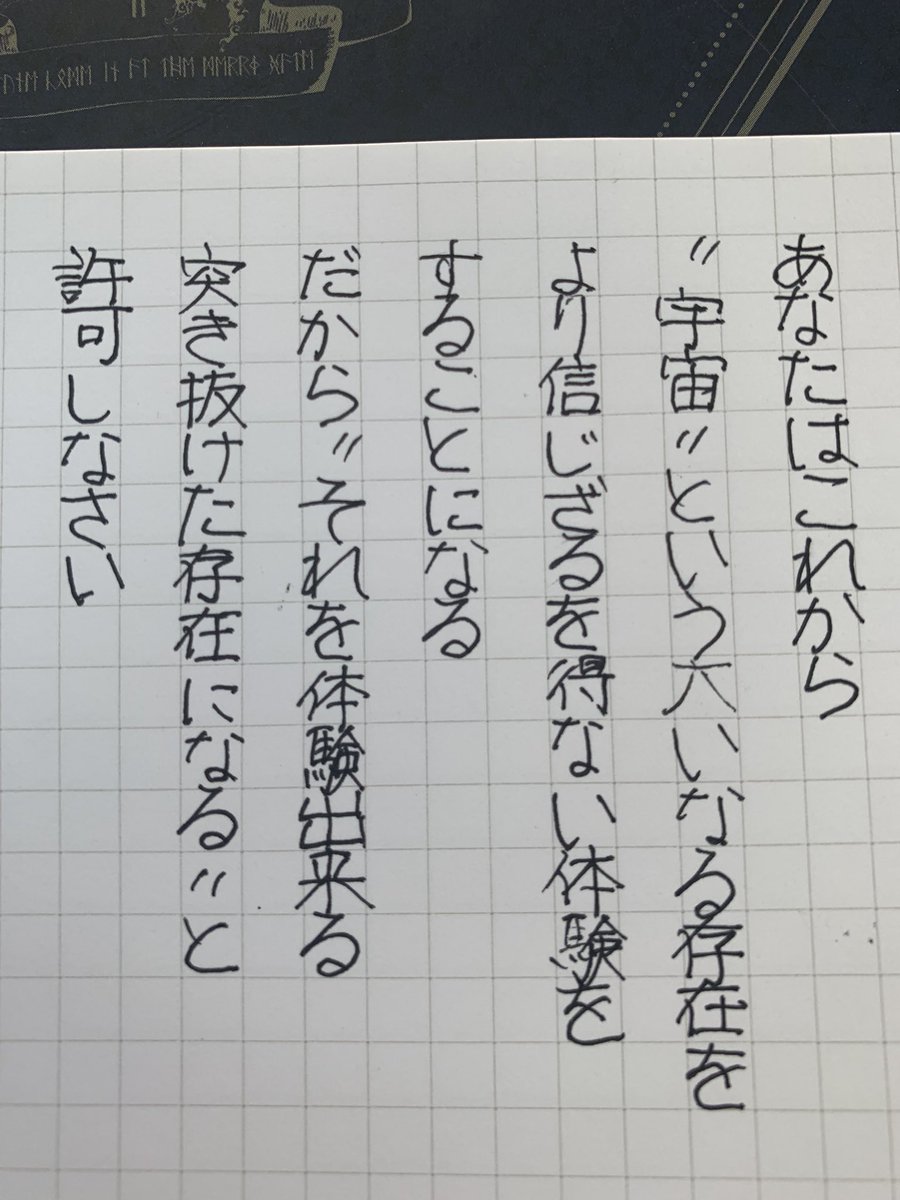 あなたはこれから
〝宇宙〟という大いなる存在を
より信じざるを得ない体験を
することになる
だから〝それを体験出来る
突き抜けた存在になる〟と
許可しなさい